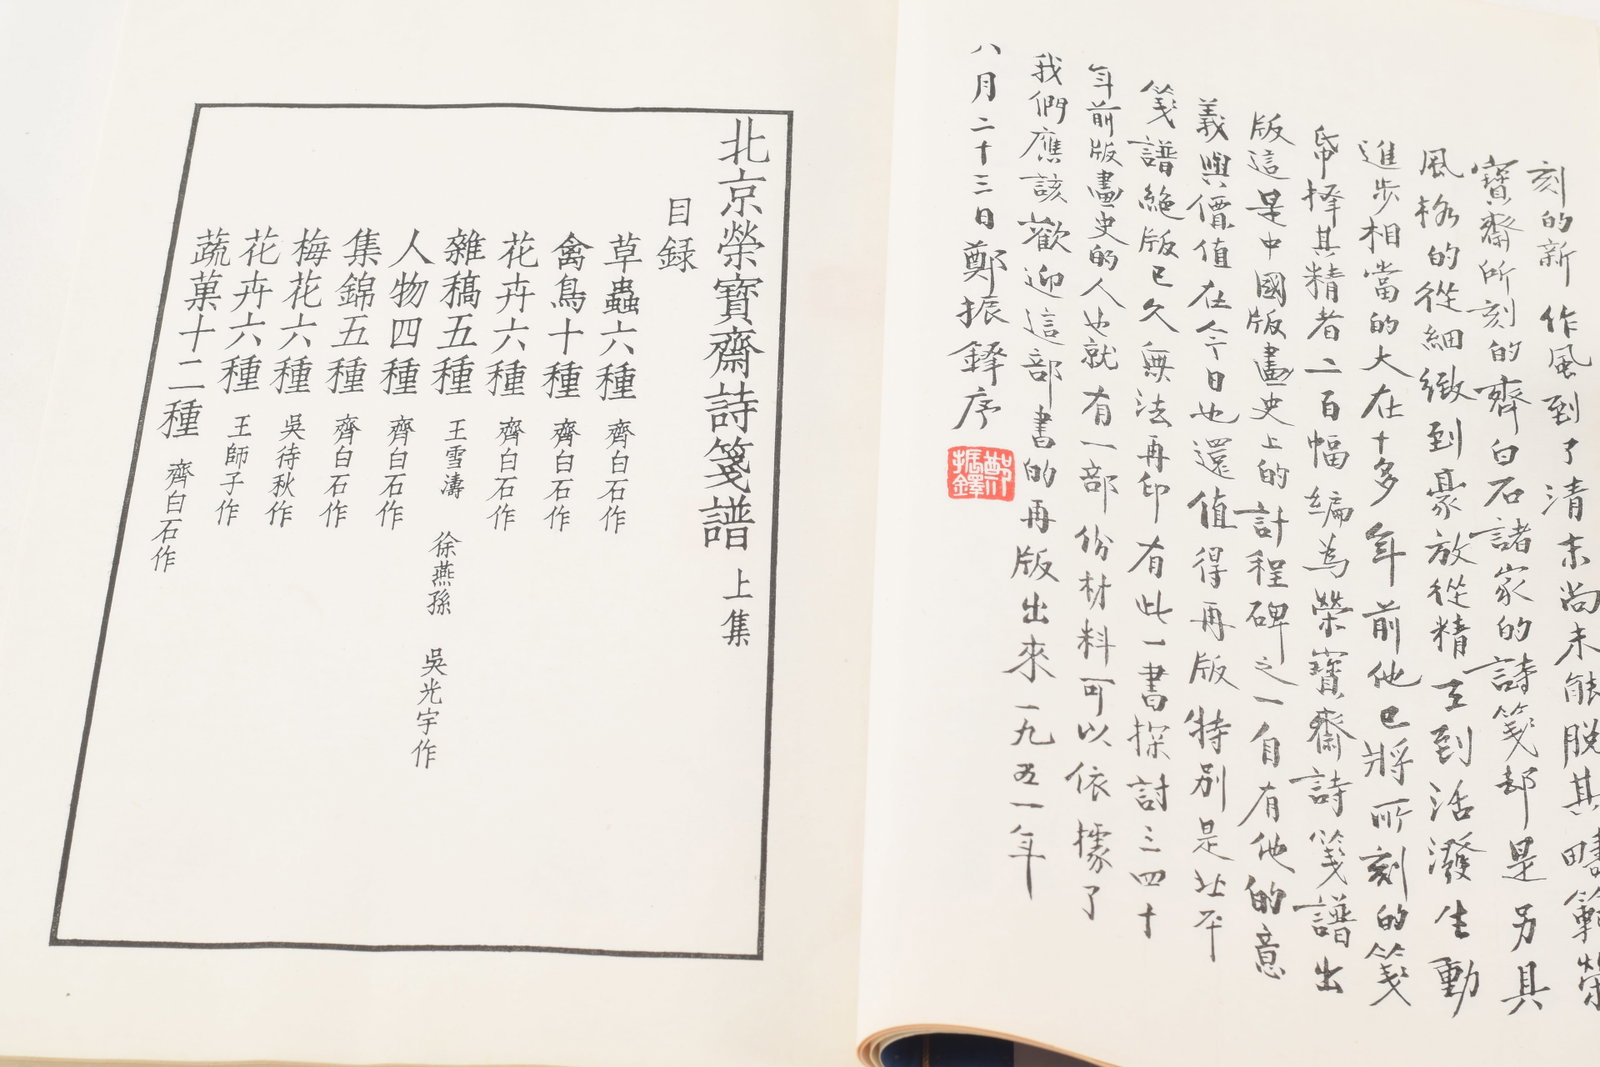 刻的新作風到了清末尚未能脫其疇範榮
寶齋所刻的齊白石諸家的詩箋却是另具
風格的從細緻到豪放從精工到活潑生動
進步相當的大在十多年前他已將所刻的箋
帋擇其精者二百幅編為榮寶齋詩箋譜出
版這是中國版畫史上的計程碑之一自有他的意
義與價值在今日也還值得再版特別是北平
箋譜絶版已久無法再印有此一書探討三四十
年前版畫史的人也就有一部份材料可以依據了
我們應該歡迎這部書的再版出來一九五一年
八月二十三日鄭振鐸序
鄭振鐸
北京榮寶齋詩箋譜 上集
目録
草蟲六種 齊白石作
禽鳥十種 齊白石作
花卉六種 齊白石作
雜稿五種 王雪濤 徐燕孫 吳光宇作
人物四種 齊白石作
集錦五種 齊白石作
梅花六種 吳待秋作
花卉六種 王師子作
蔬菓十二種 齊白石作